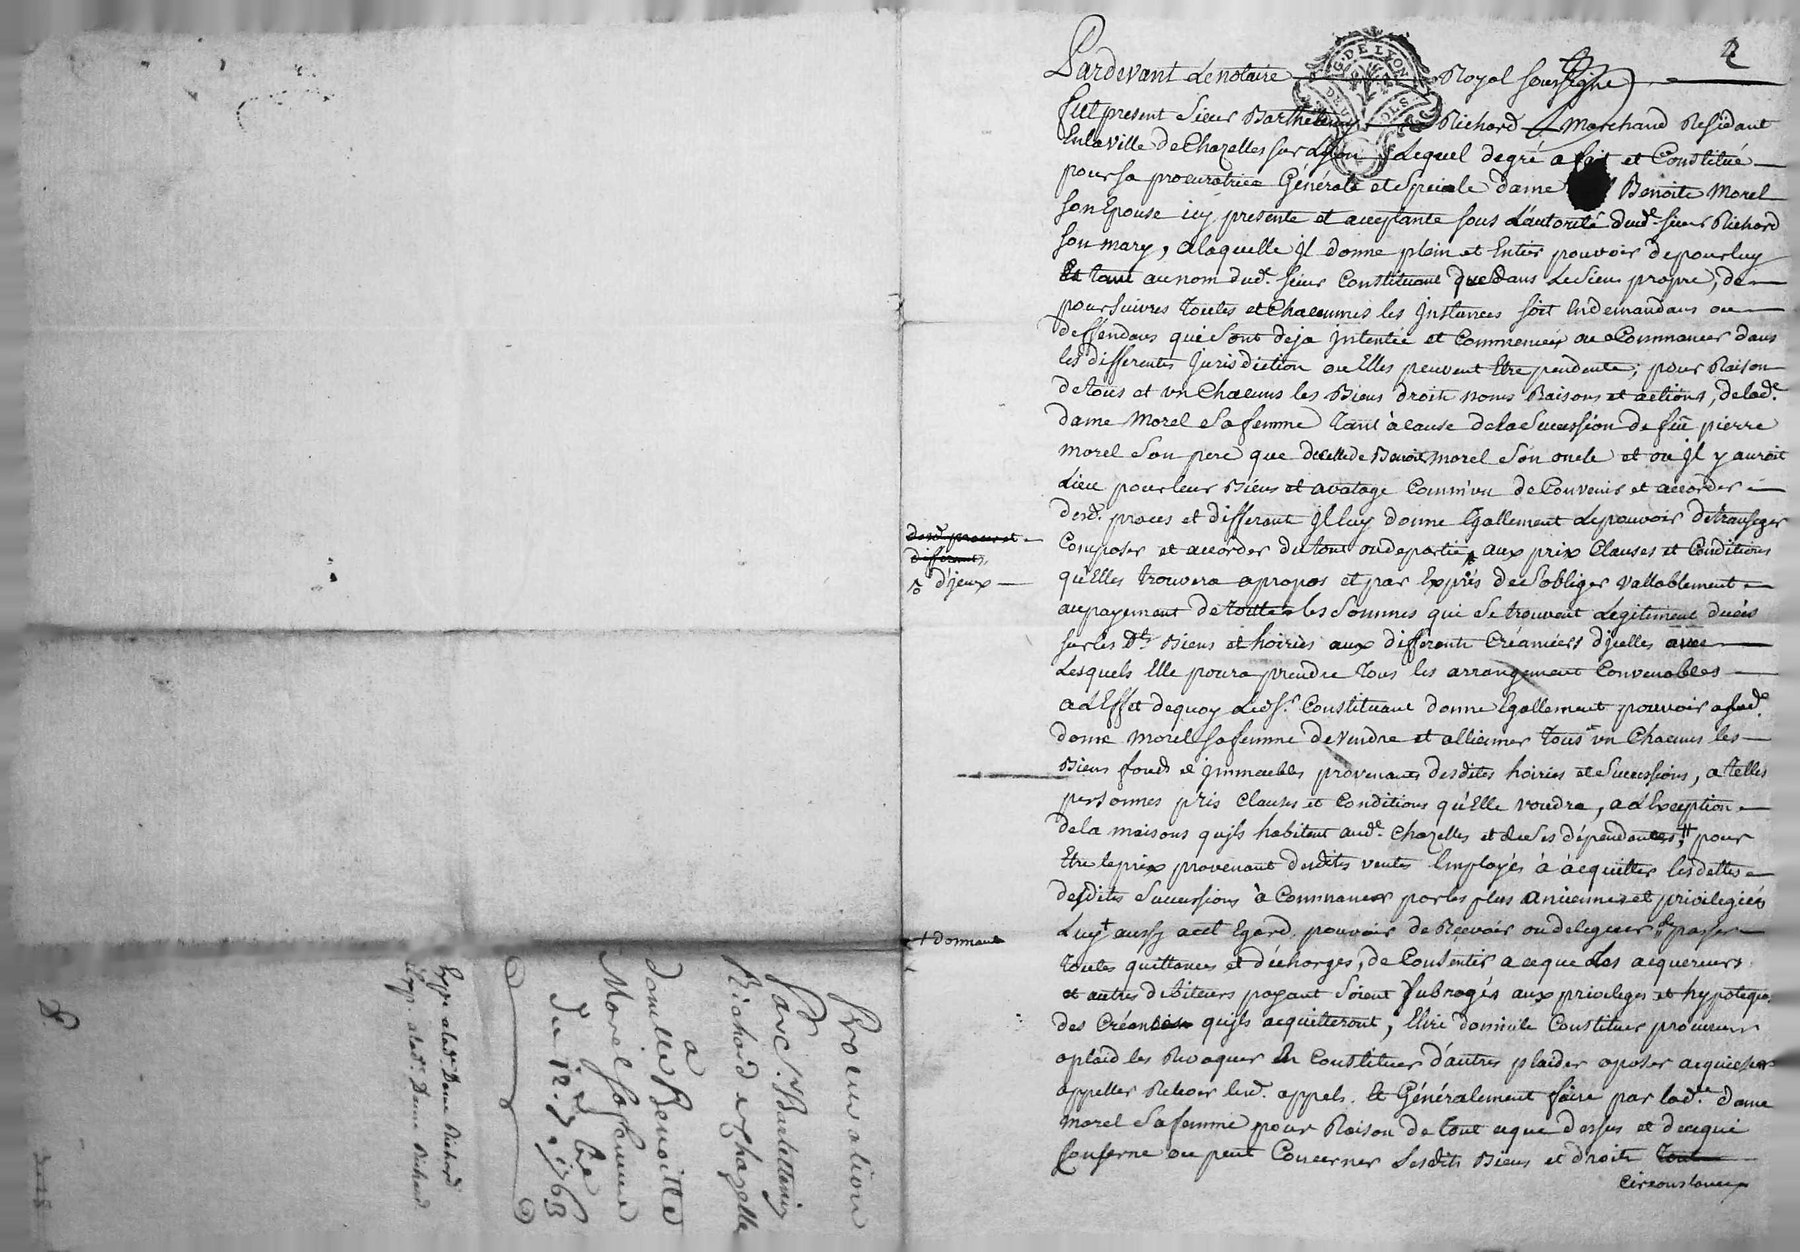 2
G. DE LYON
DEUX SOLS
Pardevant Le notaire Royal soussigné
fut present Sieur Barthelemy Richard Marchand Residant
En la ville de Chazelles sur Lyon, Lequel de gré a fait et Constitué
pour sa procuratrice Générale et Speciale dame Benoite Morel
son Epouse icy presente et acceptante sous L'autorité dud. sieur Richard
son mary, a laquelle Il donne plein et Entier pouvoir de pour luy
Et tant au nom dud. sieur Constituant que dans Le Sien propre, de
poursuivres toutes et Chacunnes les Instances soit En demandans ou
deffendans qui Sont deja Intentée et Commencées ou a Commancer dans
les differentes Jurisdiction ou Elles peuvent Etre pendente; pour Raison
de tous et vn Chacuns les Biens droits noms Raisons et actions, de lad.e
dame Morel Sa femme tant à cause de la Succession de feu pierre
Morel Son pere que de celle de Benoit Morel Son oncle et ou Il y auroit
Lieu pour leur Biens et avatage Comm'vn de Convenir et accorder
desd. proces et differant Il luy donne Egallement Le pouvoir de transiger
Composer et accorder du tout ou de partie, aux prix Clauses et Conditions
qu'Elles trouvera apropos et par Exprés de S'obliger vallablement
au payement de toutes les Sommes qui Se trouvent Legitiment duées
sur les Dts Biens et hoiries aux differents Créanciers d'jcelles avec
Lesquels Elle poura prendre tous les arrangement Convenables
a L'Effet de quoy Led. Sr. Constituant donne Egallement pouvoir a lad.e
dame Morel Sa femme de Vendre et allienner tous vn Chacuns les
Biens fonds et jmmeubles provenants desdites hoiries et Successions, a telles
personnes prix Clauses et Conditions qu'Elle voudra, a L'Exception
de la maisons qu'jls habitent aud. Chazelles et de Ses dépendances, pour
Etre le prix provenant desdites ventes Employés à acquitter les dettes
desdites Successions à Commancer par les plus anciennes et privilegiées
Luy aussy a cet Egard pouvoir de Recevoir ou deleguer passer
toutes quittances et décharges, de Consentir a ce que Les acquereurs
et autres debiteurs payant Soient Subrogés aux privileges et hypoteques
des Créanciers qu'jls acquitteront, Elire domicile Constituer procureur
a plaid les Revoquer En Constituer d'autres plaider oposer acquiescer
appeller Relever lesd. appels. Et Généralement faire par lad.e Dame
Morel Sa femme pour Raison de tout ce que dessus et de ce qui
Conserne ou peut Concerner Lesdits Biens et droits tout
Circonstances
desd. proces et
differents
d'jceux
+ donnant
Procuration
Par Sr. Barthellemy
Richard de Chazelle
a
damlle Benoitte
Morel sa femme
Du 12. 1763
Expe. a lad. Dame Richard
Exp. a lad. Dame Richard